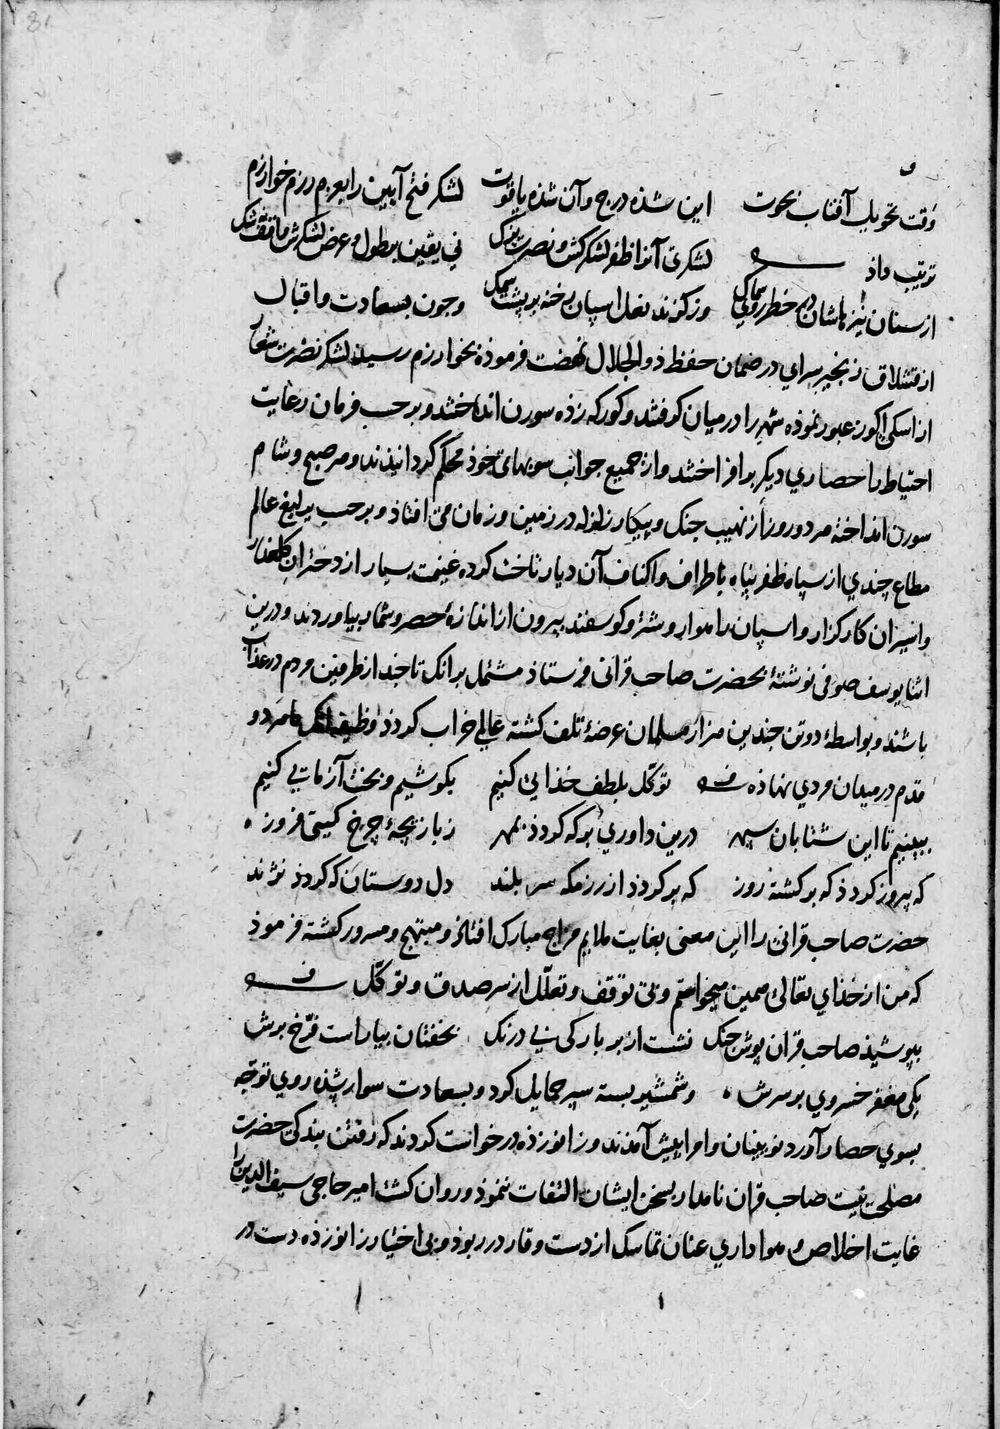 وقت تحویل آفتاب بحوت این شذه درج و آن شذه یاقوت لشکر فتح آیین را بعزم رزم خوارزم
ترتیب داد لشکری آنرا ظفر لشکرکش و نصرت یزک نی یقین بر طول و عرض لشکرش واقف نه شک
از سنان نیزهاشان در خط روی سماک وز گزند نعل اسپان رخنه بر پشت سمک و چون بسعادت و اقبال
از قشلاق زنجیر سرای در ضمان حفظ ذو الجلال نهضت فرموذه بخوارزم رسید لشکر نصرت شعار
از اسکی اکوز عبور نموذه شهر را در میان کرفتند و کورکه زذه سورن انداختند و بر حسب فرمان رعایت
احتیاط را حصاری دیکر بر افراختند و از جمیع جوانب سوبهای خوذ محکم کردانیذند و هر صبح و شام
سورن انداخته هر دو روز از نهیب جنک و پیکار زلزله در زمین و زمان می افتاد و بر حسب یرلیغ عالم
مطاع چندی از سپاه ظفر پناه باطراف و اکناف آن دیار تاخت کرده غنیمت بسیار از دختران کلعذار
و اسیران کارکزار و اسپان راهوار و شتر و کوسفند بیرون از اندازهٔ حصر و شمار بیاوردند و درین
اثنا یوسف صوفی نوشتهٔ بحضرت صاحب قرانی فرستاذ مشتمل بر آنک تا چند از طرفین مردم در عذاب
باشند و بواسطهٔ دو تن چندین هزار مسلمان عرضهٔ تلف کشته عالی خراب کردذ وظیفه آنک ما هر دو
قدم در میدان مردی نهاذه توکل بلطف خدایی کنیم بکوشیم و بخت آزمایی کنیم
ببینیم تا این شتابان سپهر درین داوری بر که کردذ بمهر ز بازیچهٔ چرخ کیتی فروز
که پیروز کردذ که برکشته روز که بر کردذ از رزمکه سر بلند دل دوستان که کردذ نژند
حضرت صاحب قرانی را این معنی بغایت ملایم مزاج مبارک افتاذ و مبتهج و مسرور کشته فرموذ
که من از خذای تعالی همین میخواستم و بی توقف و تعلّل از سر صدق و توکّل
بپوشیذ صاحب قران پوش جنک نشست از بر بارکی بی درنک بخفتان بیاراست فرّخ برش
یکی مغفر خسروی بر سرش و شمشیر بسته سپر حمایل کرد و بسعادت سوار شذه روی توجّه
بسوی حصار آورد نویینان و امرا پیش آمذند و زانو زذه درخواست کردند که رفتن بندکی حضرت
مصلحت نیست صاحب قران نامدار بسخن ایشان التفات ننموذ و روان کشت امیر حاجی سیف الدین را
غایت اخلاص و هواداری عنان تماسک از دست وقار در ربوذ و بی اختیار زانو زذه دست در